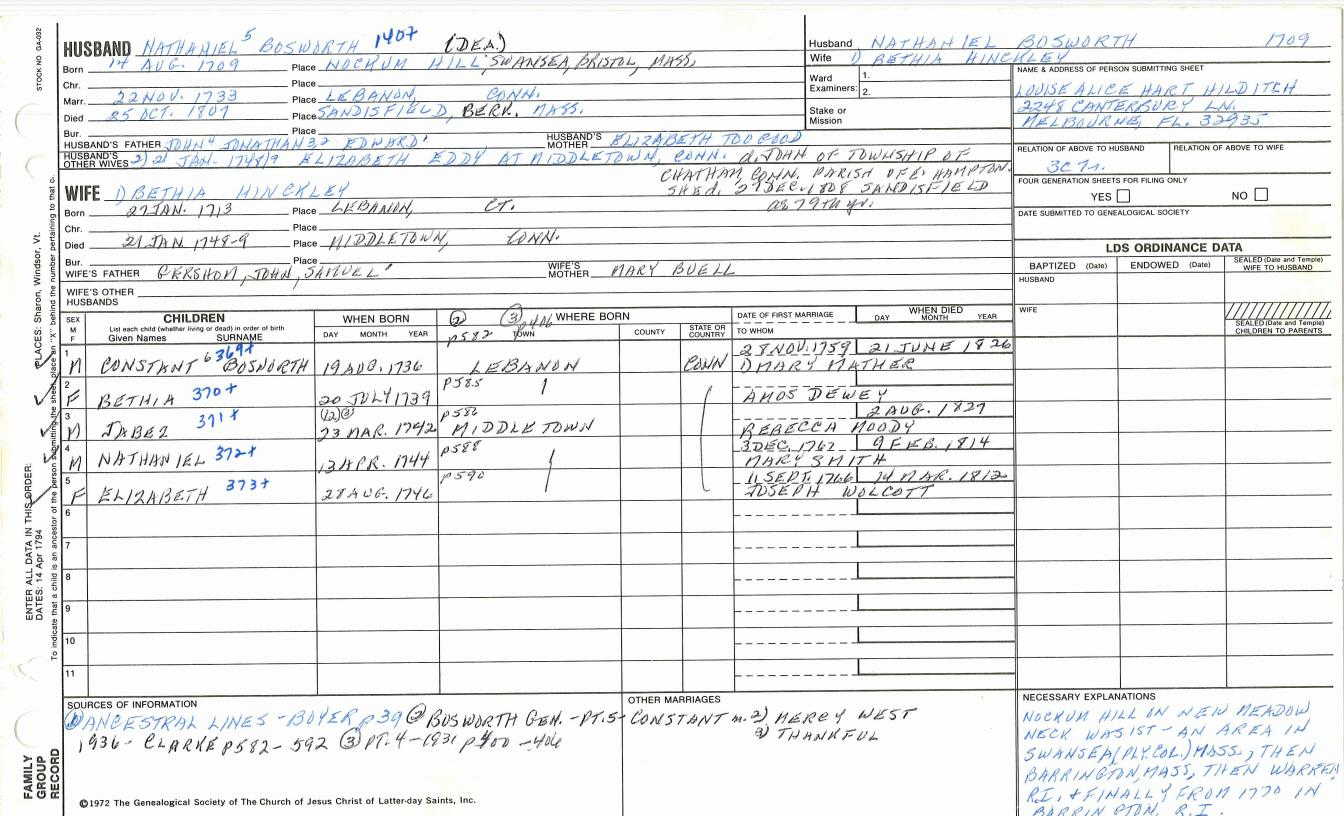 STOCK NO. GA-032
HUSBAND NATHANIEL 5 BOSWORTH 1407 (DEA.)
Born 14 AUG. 1709 Place NOCKUM HILL, SWANSEA, BRISTOL, MASS.
Chr. Place
Marr. 22 NOV. 1733 Place LEBANON, CONN.
Died 25 OCT. 1807 Place SANDISFIELD, BERK. MASS.
Bur. Place
HUSBAND'S FATHER JOHN JONATHAN EDWARD HUSBAND'S MOTHER ELIZABETH TOOGOOD
HUSBAND'S OTHER WIVES 2) 21 JAN. 1748/9 ELIZABETH EDDY AT MIDDLETOWN, CONN. d. JOHN OF TOWNSHIP OF
CHATHAM CONN. PARISH OF E. HAMPTON.
SHE d. 27 DEC. 1808 SANDISFIELD
as 79th yr.
WIFE 1) BETHIA HINCKLEY
Born 27 JAN. 1713 Place LEBANON, CT.
Chr. Place
Died 21 JAN 1748-9 Place MIDDLETOWN, CONN.
Bur. Place
WIFE'S FATHER GERSHOM, JOHN, SAMUEL' WIFE'S MOTHER MARY BUELL
WIFE'S OTHER HUSBANDS
Husband NATHANIEL BOSWORTH 1709
Wife 1) BETHIA HINCKLEY
Ward Examiners: 1.
2.
Stake or Mission
NAME & ADDRESS OF PERSON SUBMITTING SHEET
LOUISE ALICE HART HILDITCH
2248 CANTERBURY LN.
MELBOURNE, FL. 32935
RELATION OF ABOVE TO HUSBAND RELATION OF ABOVE TO WIFE
3C7r.
FOUR GENERATION SHEETS FOR FILING ONLY
YES NO
DATE SUBMITTED TO GENEALOGICAL SOCIETY
LDS ORDINANCE DATA
BAPTIZED (Date) ENDOWED (Date) SEALED (Date and Temple) WIFE TO HUSBAND
HUSBAND
WIFE
SEALED (Date and Temple) CHILDREN TO PARENTS
SEX M F CHILDREN WHEN BORN ② ③ WHERE BORN DATE OF FIRST MARRIAGE WHEN DIED
List each child (whether living or dead) in order of birth
Given Names SURNAME DAY MONTH YEAR p582 p406 TOWN COUNTY STATE OR COUNTRY TO WHOM DAY MONTH YEAR
1 M CONSTANT 6 369+ BOSWORTH 19 AUG. 1736 LEBANON CONN 28 NOV. 1759 21 JUNE 1826
1) MARY MATHER
2 F BETHIA 370+ 20 JULY 1739 p585
AMOS DEWEY
3 M JABEZ 371+ (12) ② 23 MAR. 1742 p586 MIDDLETOWN 2 AUG. 1827
REBECCA MOODY
4 M NATHANIEL 372+ 13 APR. 1744 p588 3 DEC. 1767 9 FEB. 1814
MARY SMITH
5 F ELIZABETH 373+ 28 AUG. 1746 p590 11 SEPT. 1766 14 MAR. 1812
JOSEPH WOLCOTT
6
7
8
9
10
11
SOURCES OF INFORMATION
① ANCESTRAL LINES - BOYER p39 ② BOSWORTH GEN. - PT. 5-
1936 - CLARKE p582 - 592 ③ PT. 4 - 1931 p400 - 406
©1972 The Genealogical Society of The Church of Jesus Christ of Latter-day Saints, Inc.
OTHER MARRIAGES
CONSTANT m. 2) MERCY WEST
3) THANKFUL
NECESSARY EXPLANATIONS
NOCKUM HILL ON NEW MEADOW
NECK WAS 1ST - AN AREA IN
SWANSEA (PLY. COL.) MASS., THEN
BARRINGTON, MASS, THEN WARREN
R.I. & FINALLY FROM 1770 IN
BARRINGTON, R.I.
ENTER ALL DATA IN THIS ORDER:
DATES: 14 Apr 1794
PLACES: Sharon, Windsor, Vt.
To indicate that a child is an ancestor of the person submitting the sheet, place an "X" behind the number pertaining to that
FAMILY GROUP RECORD